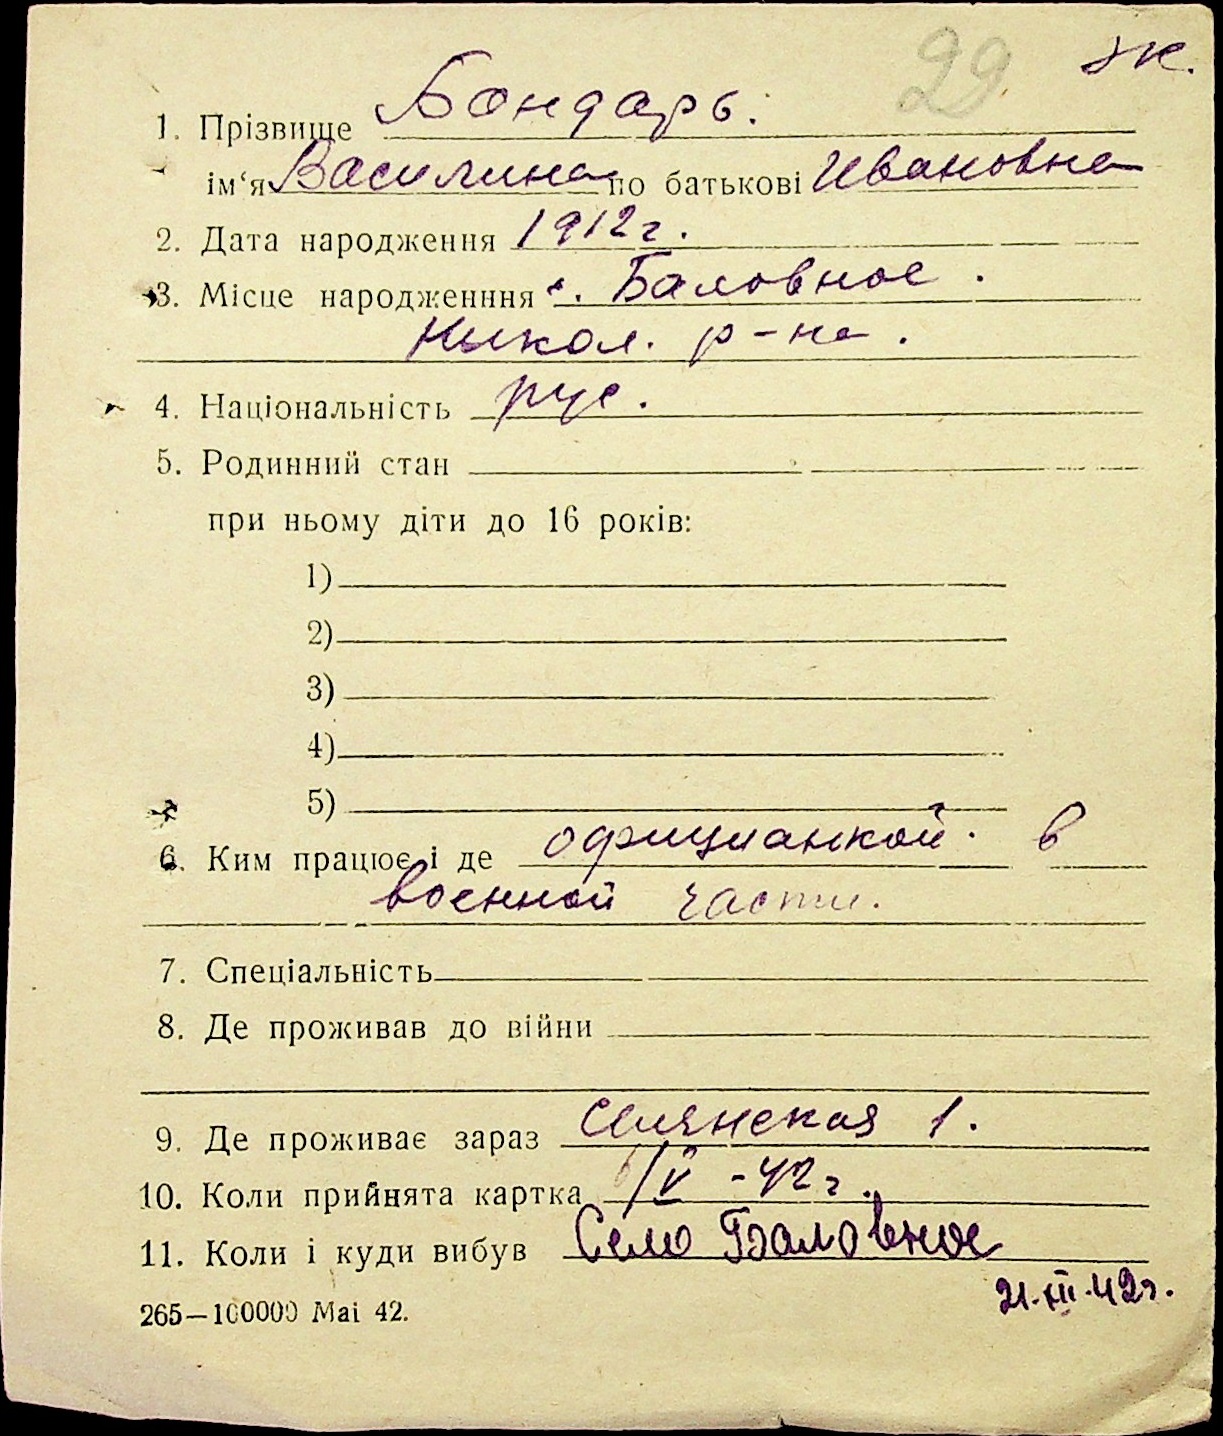 29 ж.
1. Прізвище Бондарь.
ім‘я Василина по батькові Ивановна
2. Дата народження 1912 г.
3. Місце народженння с. Баловное.
Никол. р-на.
4. Національність рус.
5. Родинний стан
при ньому діти до 16 років:
1)
2)
3)
4)
5)
6. Ким працює і де официанкой. в
военной части.
7. Спеціальність
8. Де проживав до війни
9. Де проживає зараз Селянская 1.
10. Коли прийнята картка /V -42 г.
11. Коли і куди вибув Село Баловное
21.III.42г.
265—100000 Mai 42.